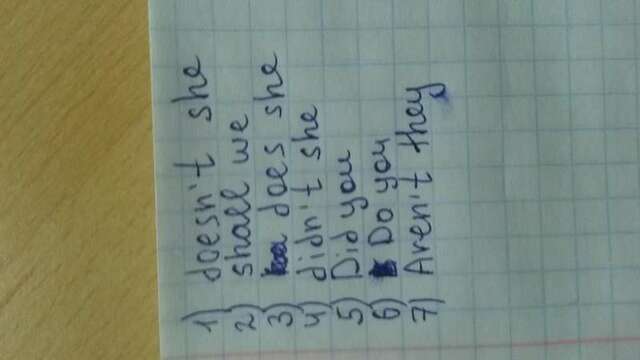 1) doesn't she
2) shall we
3) does she
4) didn't she
5) Did you
6) Do you
7) Aren't they